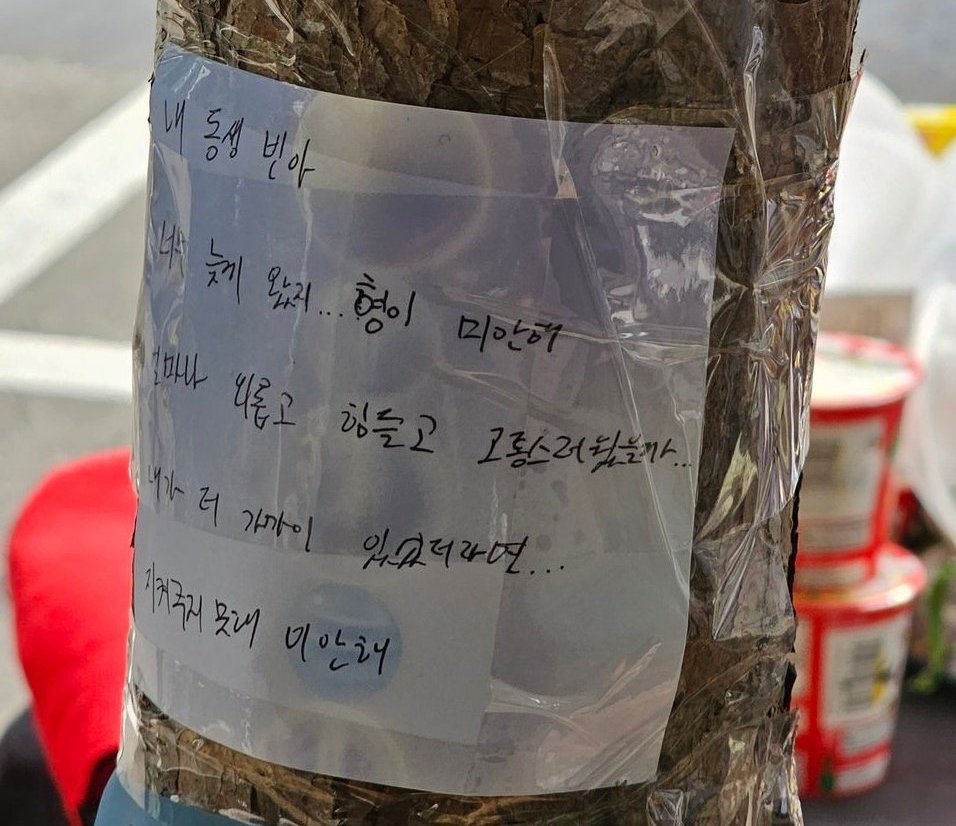 내 동생 빈아
너무 늦게 왔지... 형이 미안해
얼마나 외롭고 힘들고 고통스러웠을까...
내가 더 가까이 있었더라면...
지켜주지 못해 미안해